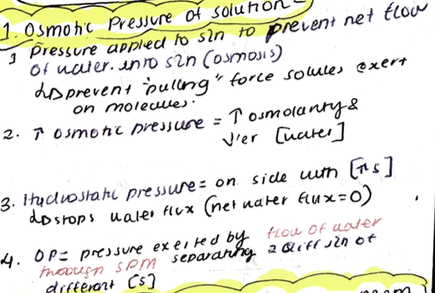 1. Osmotic Pressure of solution
1 Pressure applied to sln to prevent net flow
of water into sln (osmosis)
↳ prevent "pulling" force solutes exert
on molecules.
2. ↑ osmotic pressure = ↑ osmolarity &
↓'er [water]
3. Hydrostatic pressure = on side with [↑ s]
↳ stops water flux (net water flux=0)
4. OP = pressure exerted by flow of water
through SPM separating 2 diff sln of
different [s]